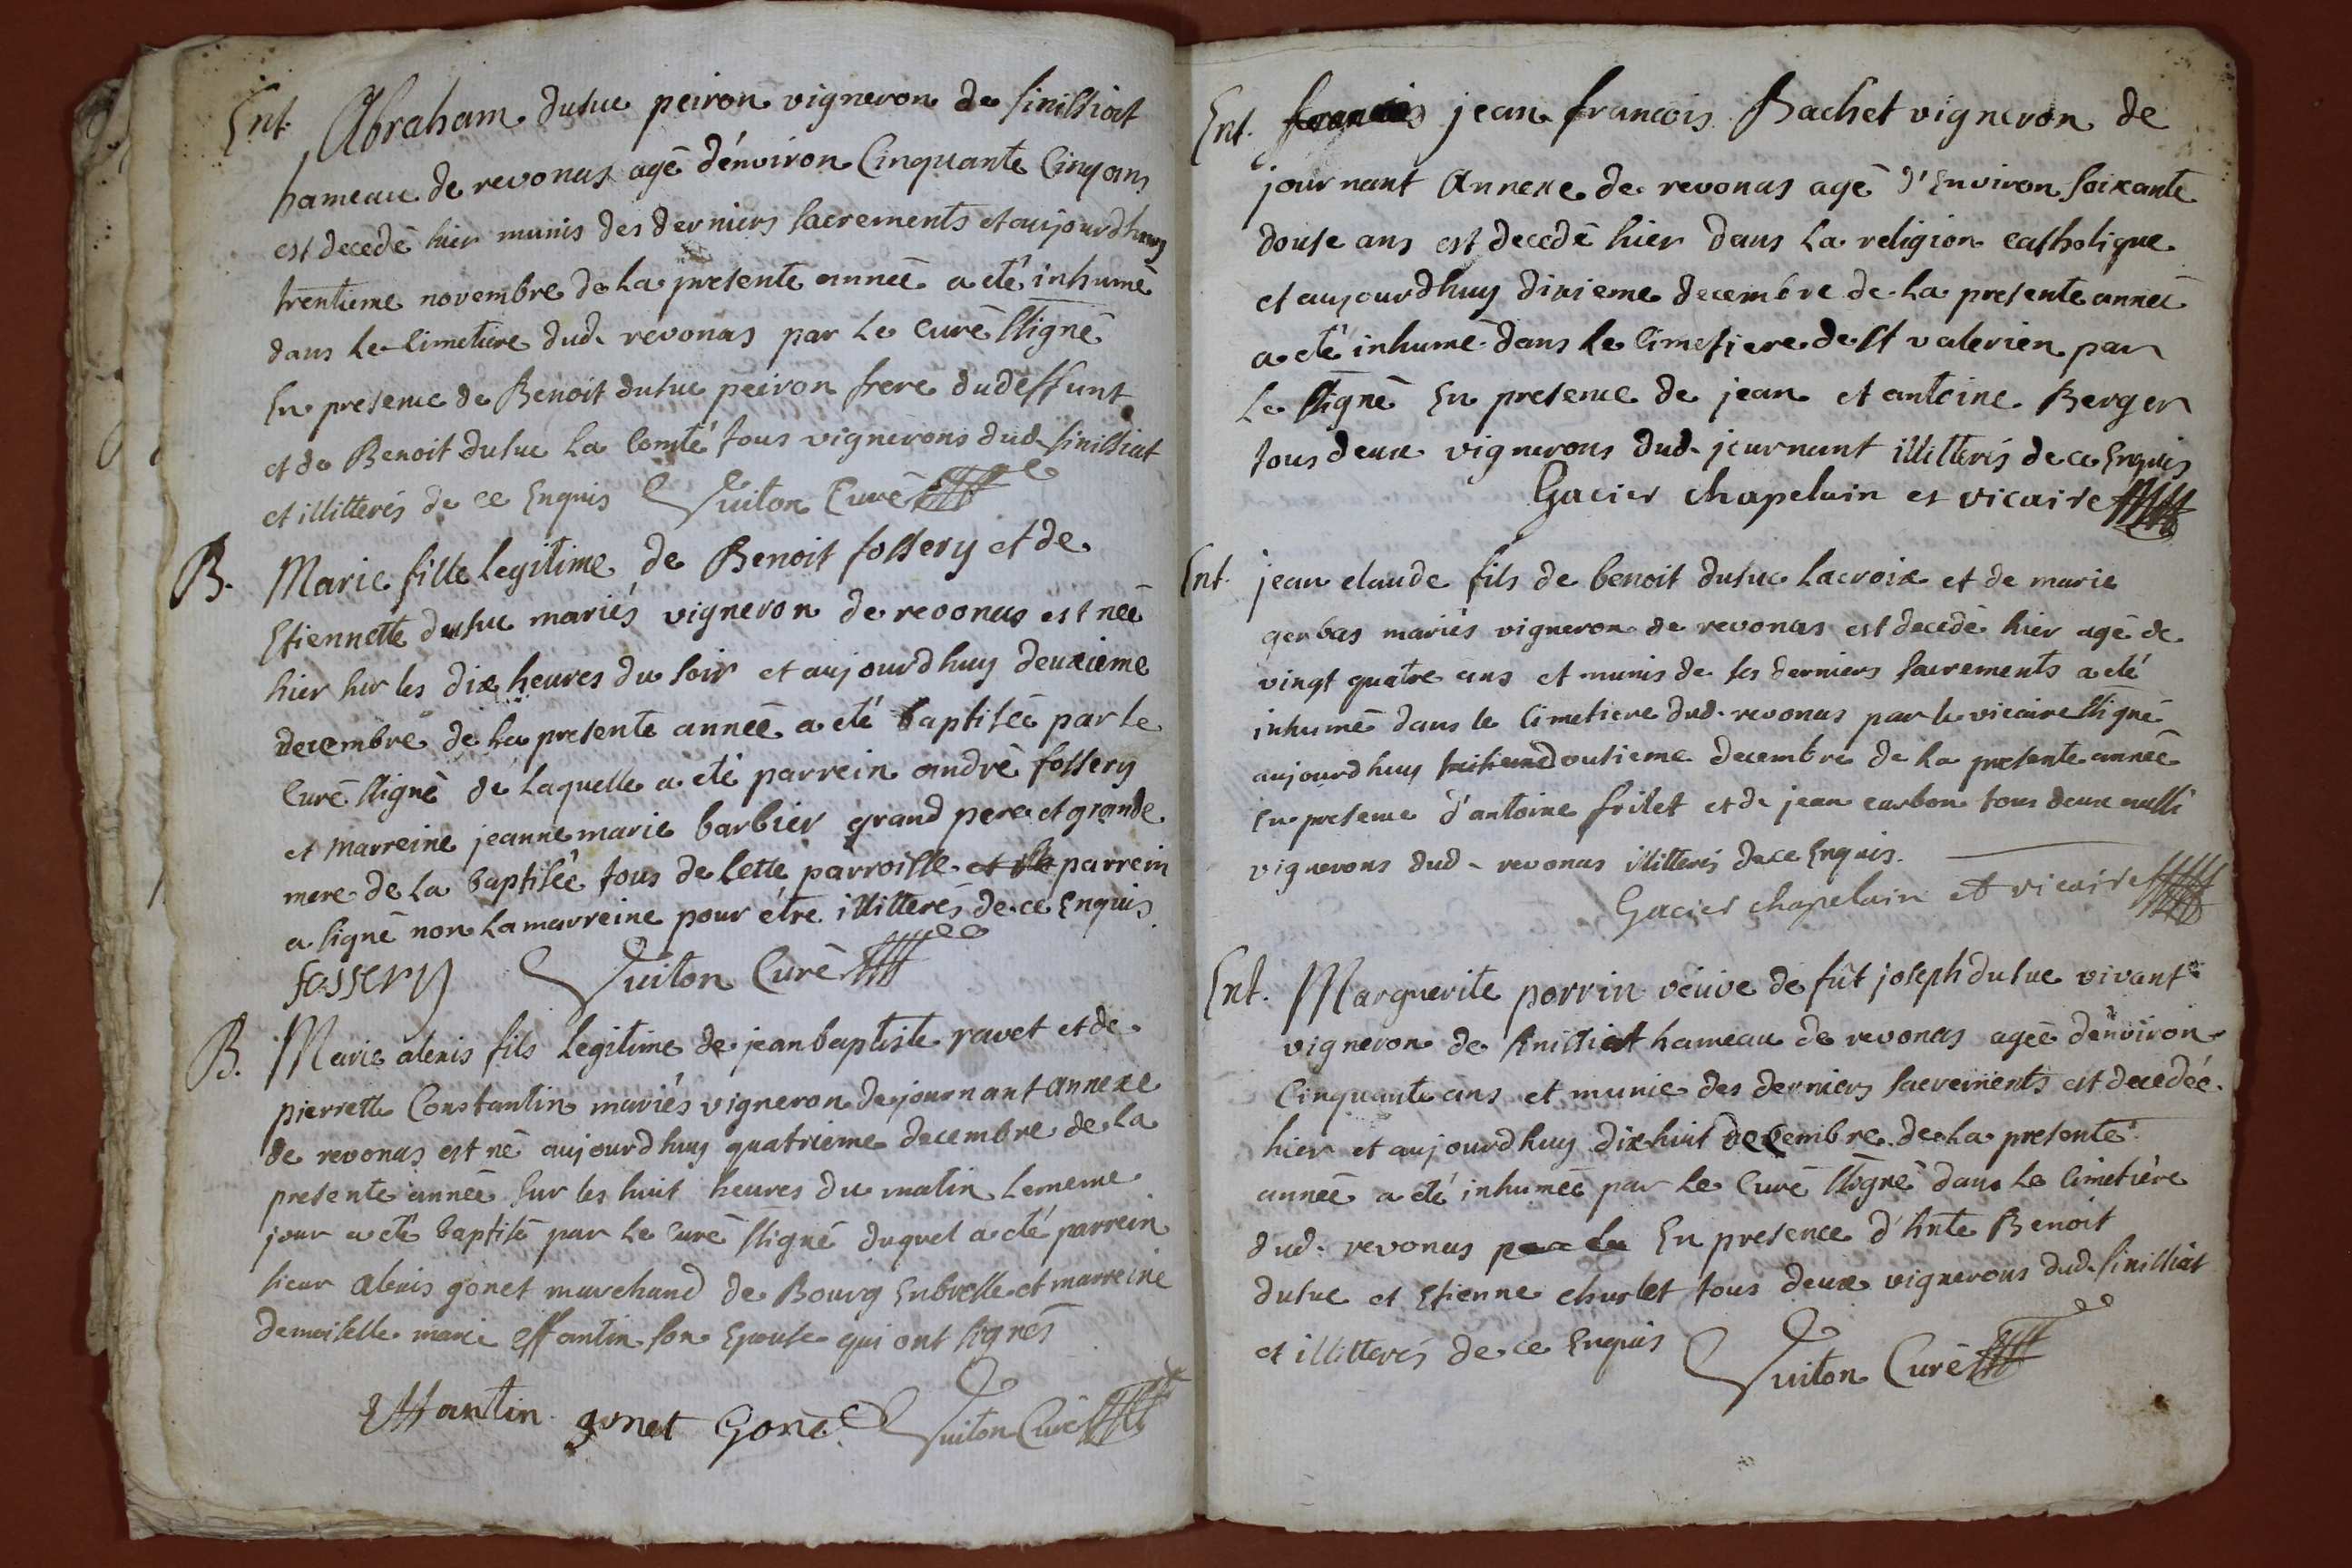 Ent. Abraham dusuc peiron vigneron de sinissiat
hameau de revonas agé d'énviron Cinquante Cinq ans
est decedé hier munis des derniers sacrements et aujourdhuy
trentieme novembre de la presente anneé a eté inhumé
dans le Cimetiere dud. revonas par le curé ssigné
En presence de Benoit dusuc peiron frere dudeffunt
et de Benoit dusuc la Comté tous vignerons dud. sinissiat
et illitterés de ce Enquis Vuiton Curé
B. Marie fille legitime de Benoit fossery et de
Etiennette dusuc mariés vigneron de revonas est neé
hier sur les dix heures du soir et aujourdhuy deuxieme
decembre de la presente anneé a eté baptiseé par le
Curé ssigné de laquelle a eté parrein andré fossery
et marreine jeanne marie barbier grand pere et grande
mere de la baptiseé tous de cette parroisse et le parrein
a signé non la marreine pour étre illitterés de ce Enquis
fossery Vuiton Curé
B. Marie alexis fils legitime de jean baptiste ravet et de
pierrette Constantin mariés vigneron de journant annexe
de revonas est né aujourdhuy quatrieme decembre de la
presente anneé sur les huit heures du matin le meme
jour a eté baptisé par le curé ssigné duquel a eté parrein
sieur alexis gonet marchand de Bourg Enbresse et marreine
demoiselle marie effantin son Epouse qui ont signés
Effantin gonet Gonet Vuiton Curé
Ent. francois jean francois Bachet vigneron de
journant Annexe de revonas agé d'Environ soixante
douse ans est decedé hier dans la religion catholique
et aujourdhuy dixieme decembre de la presente anneé
a eté inhumé dans le cimetiere de st valerien par
le ssigné En presence de jean et antoine Berger
tous deux vignerons dud. journant illitterés de ce Enquis
Gacier chapelain et vicaire
Ent. jean claude fils de benoit dusuc lacroix et de marie
gerbas mariés vigneron de revonas est decedé hier agé de
vingt quatre ans et munis de ses derniers sacrements a eté
inhumé dans le Cimetiere dud. revonas par le vicaire ssigné
aujourdhuy doutieme decembre de la presente anneé
En presence d'antoine frilet et de jean carbon tous deux
vignerons dud. revonas illitterés de ce Enquis.
Gacier chapelain et vicaire
Ent. Marguerite porrin veuve de fût joseph dusuc vivant
vigneron de sinissiat hameau de revonas ageé d'énviron
Cinquante ans et munie des derniers sacrements est decedeé
hier et aujourdhuy dixhuit decembre de la presente
anneé a eté inhumeé par le Curé ssigné dans le Cimetiére
dud. revonas par la En presence d'hnte Benoit
dusuc et Etienne charlet tous deux vignerons dud. sinissiat
et illitterés de ce Enquis Vuiton Curé